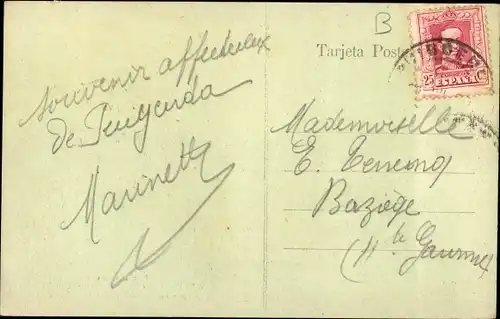 B
Tarjeta Post
25 ESPAÑA C
souvenir affectueux
de Puigcerda
Marinette
Mademoiselle
E.
Baziège
(Hte Garonne)